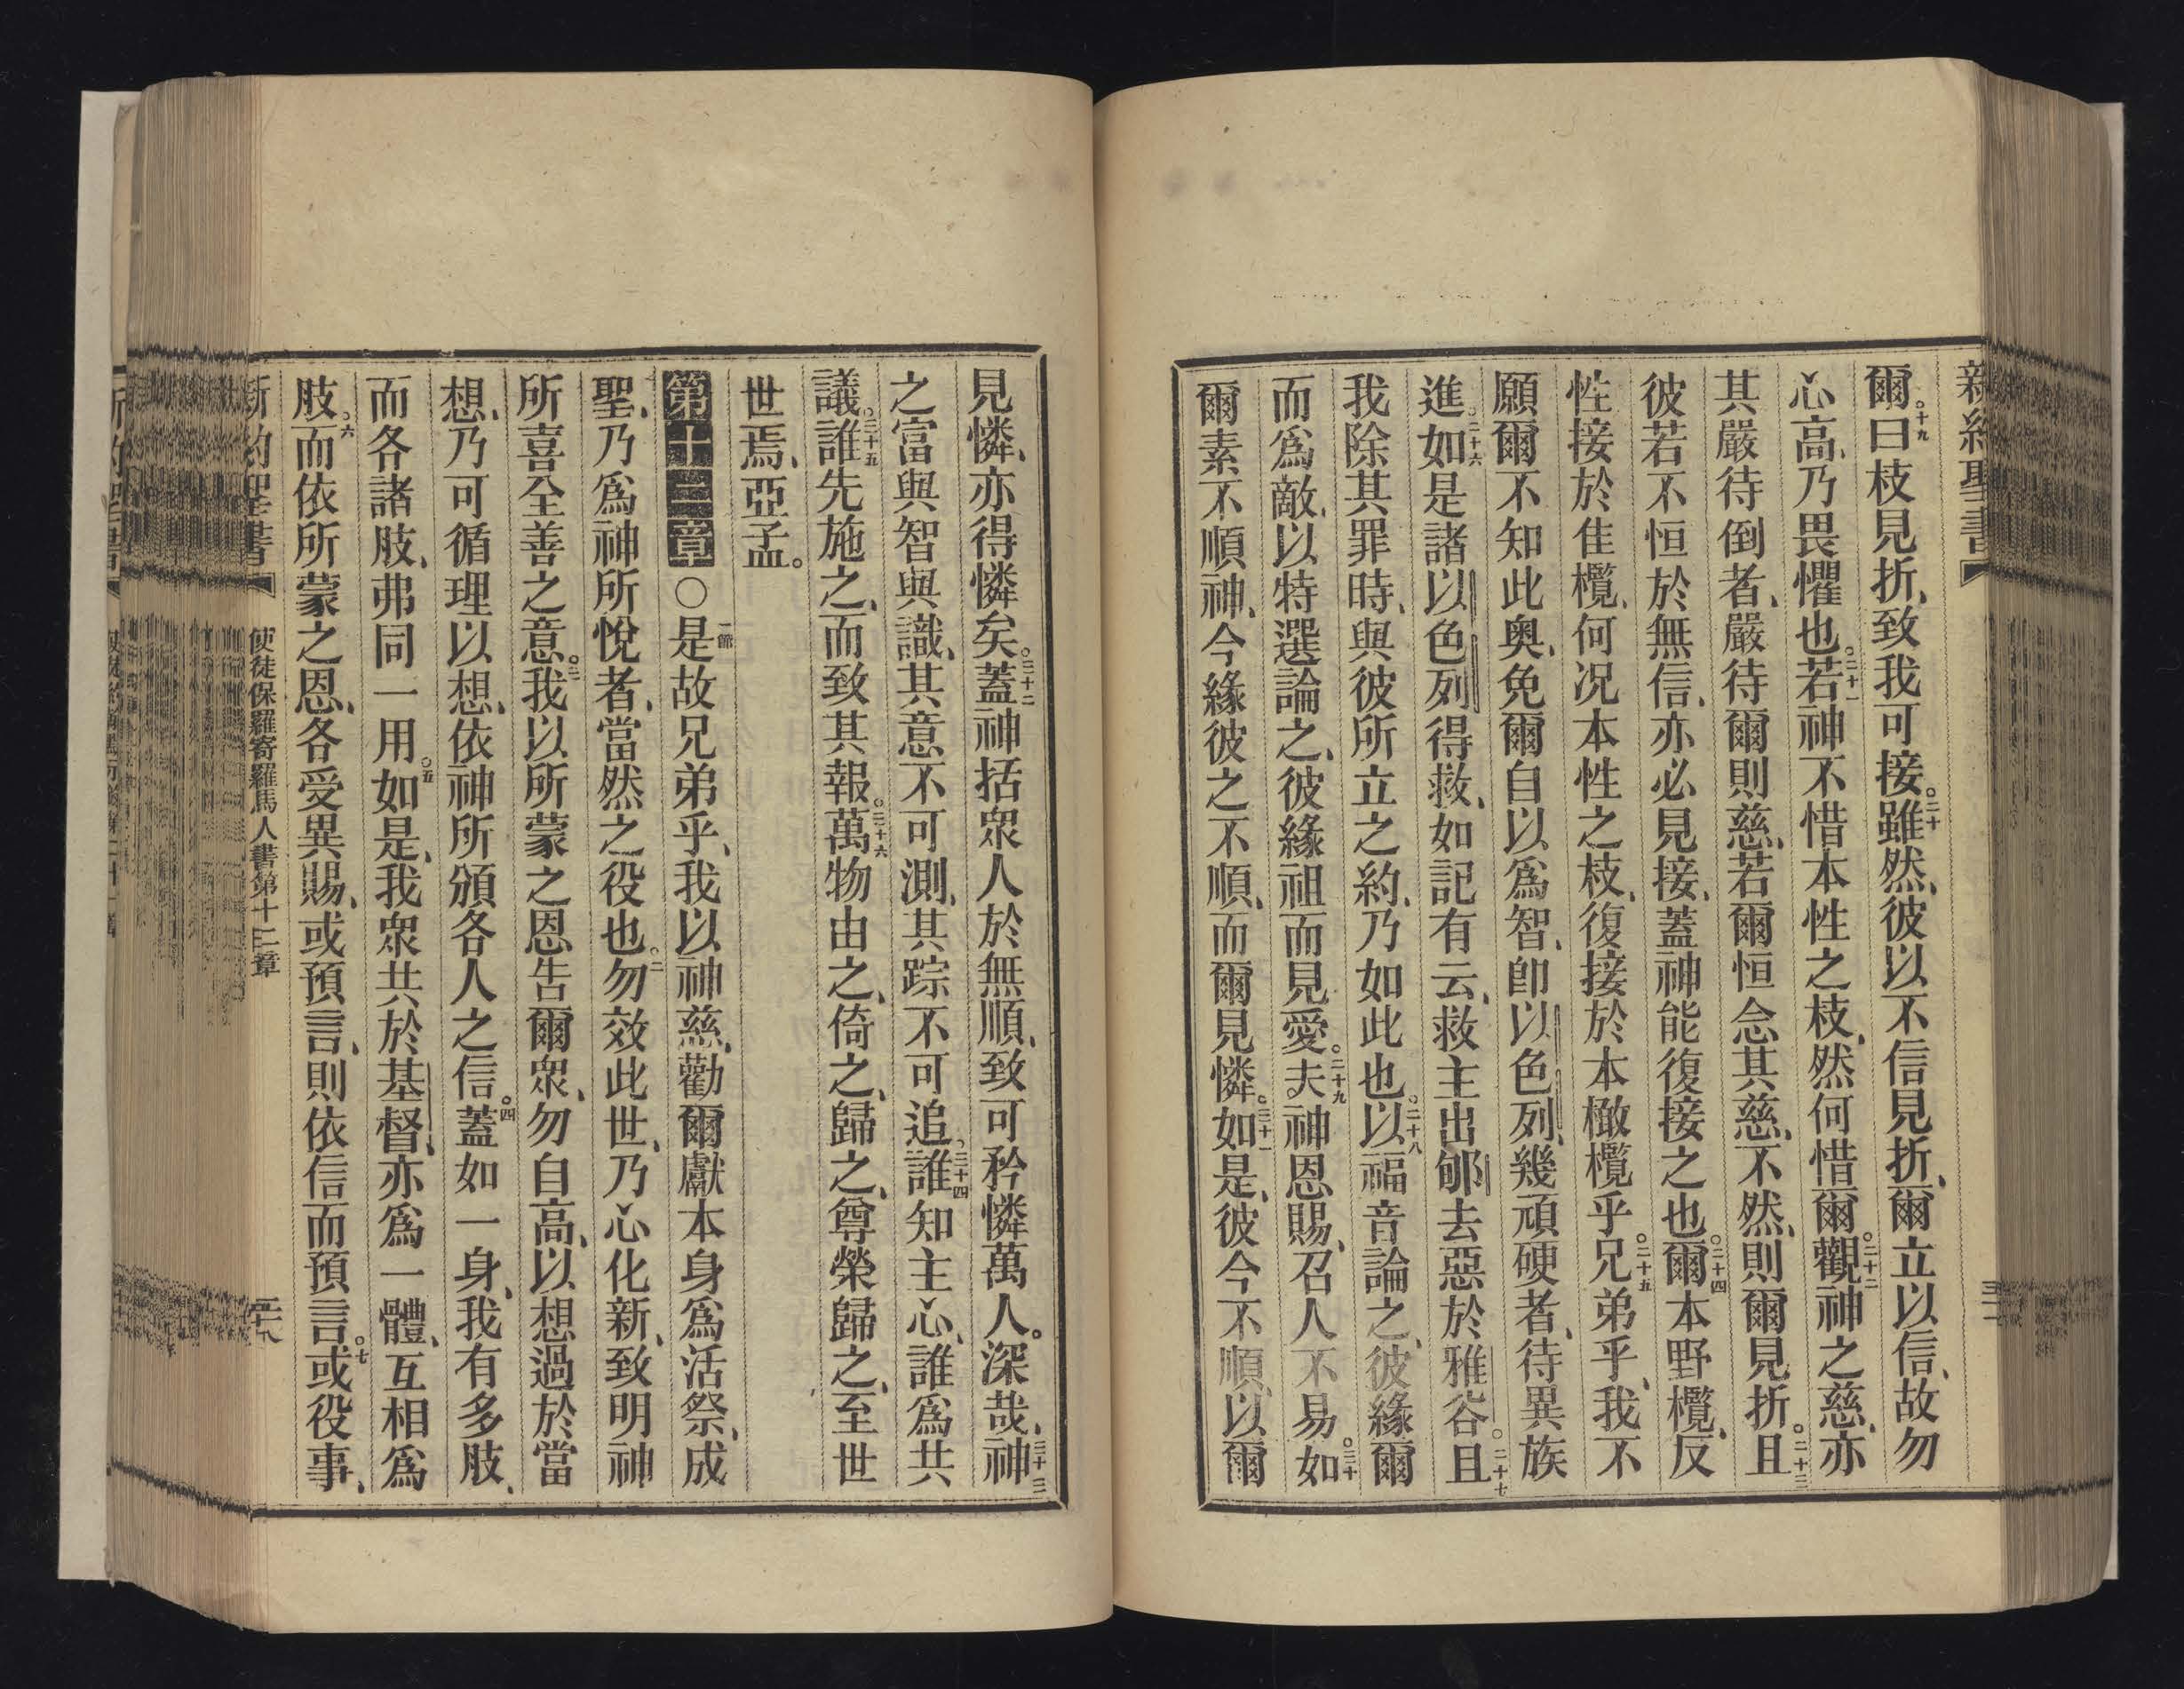 新約聖書
爾。十九曰枝見折、致我可接。二十雖然、彼以不信見折、爾立以信、故勿
心高、乃畏懼也。二十一若神不惜本性之枝、然何惜爾。二十二觀神之慈、亦
其嚴待倒者、嚴待爾則慈、若爾恒念其慈、不然、則爾見折。二十三且
彼若不恒於無信、亦必見接、蓋神能復接之也。二十四爾本野欖、反
性接於佳欖、何况本性之枝、復接於本橄欖乎。二十五兄弟乎、我不
願爾不知此奥、免爾自以爲智、卽以色列幾頑硬者、待異族
進。二十六如是諸以色列得救、如記有云、救主出郇去惡於雅谷。二十七且
我除其罪時、與彼所立之約、乃如此也。二十八以福音論之、彼緣爾
而爲敵、以特選論之、彼緣祖而見愛。二十九夫神恩賜、召人不易。三十如
爾素不順神、今緣彼之不順、而爾見憐。三十一如是、彼今不順、以爾
見憐、亦得憐矣。三十二蓋神括衆人於無順、致可矜憐萬人。深哉、三十三神
之富與智與識、其意不可測、其踪不可追。三十四誰知主心、誰爲共
議。三十五誰先施之、而致其報。三十六萬物由之、倚之、歸之、尊榮歸之、至世
世焉、亞孟。
第十二章○一節是故兄弟乎、我以神慈、勸爾獻本身爲活祭、成
聖、乃爲神所悅者、當然之役也。二勿效此世、乃心化新、致明神
所喜全善之意。三我以所蒙之恩吿爾衆、勿自高、以想過於當
想、乃可循理以想、依神所頒各人之信。四蓋如一身、我有多肢、
而各諸肢、弗同一用。五如是、我衆共於基督、亦爲一體、互相爲
肢。六而依所蒙之恩、各受異賜、或預言、則依信而預言。七或役事、
新約聖書 使徒保羅寄羅馬人書第十二章